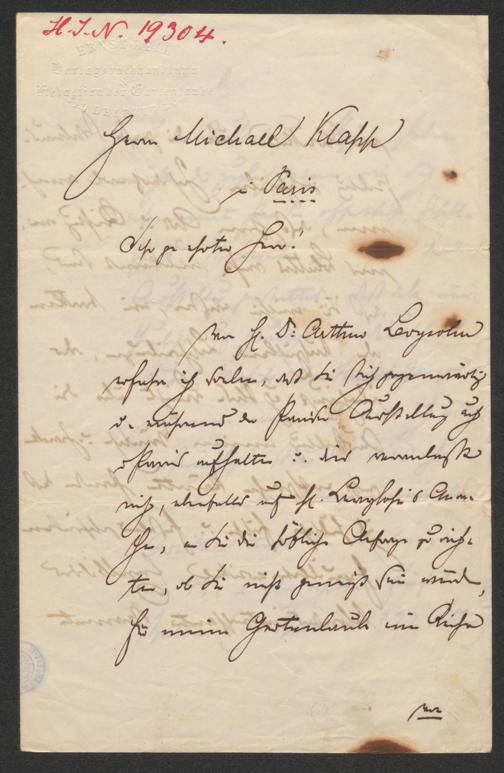 H.I.N. 19304.
ERNST KEIL
Verlagsbuchhandlung
Redaction der Gartenlaube
Herrn Michael Klapp
in Paris
Sehr geehrter Herr!
Von H. Dr. Arthur Levysohn
erfahre ich soeben, daß Sie sich gegenwärtig
u. während der Pariser Ausstellung auch
in Paris aufhalten u. dies veranlaßt
mich, ebenfalls auf H. Levysohn's
an Sie die höfliche Anfrage zu rich-
ten, ob Sie nicht geneigt sein würden,
für meine Gartenlaube eine Reihe
von